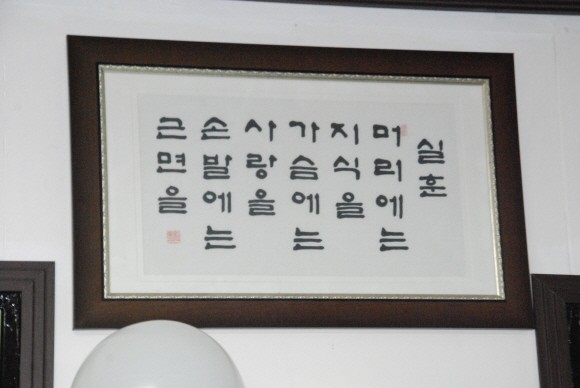 실훈
머리에는
지식을
가슴에는
사랑을
손발에는
근면을